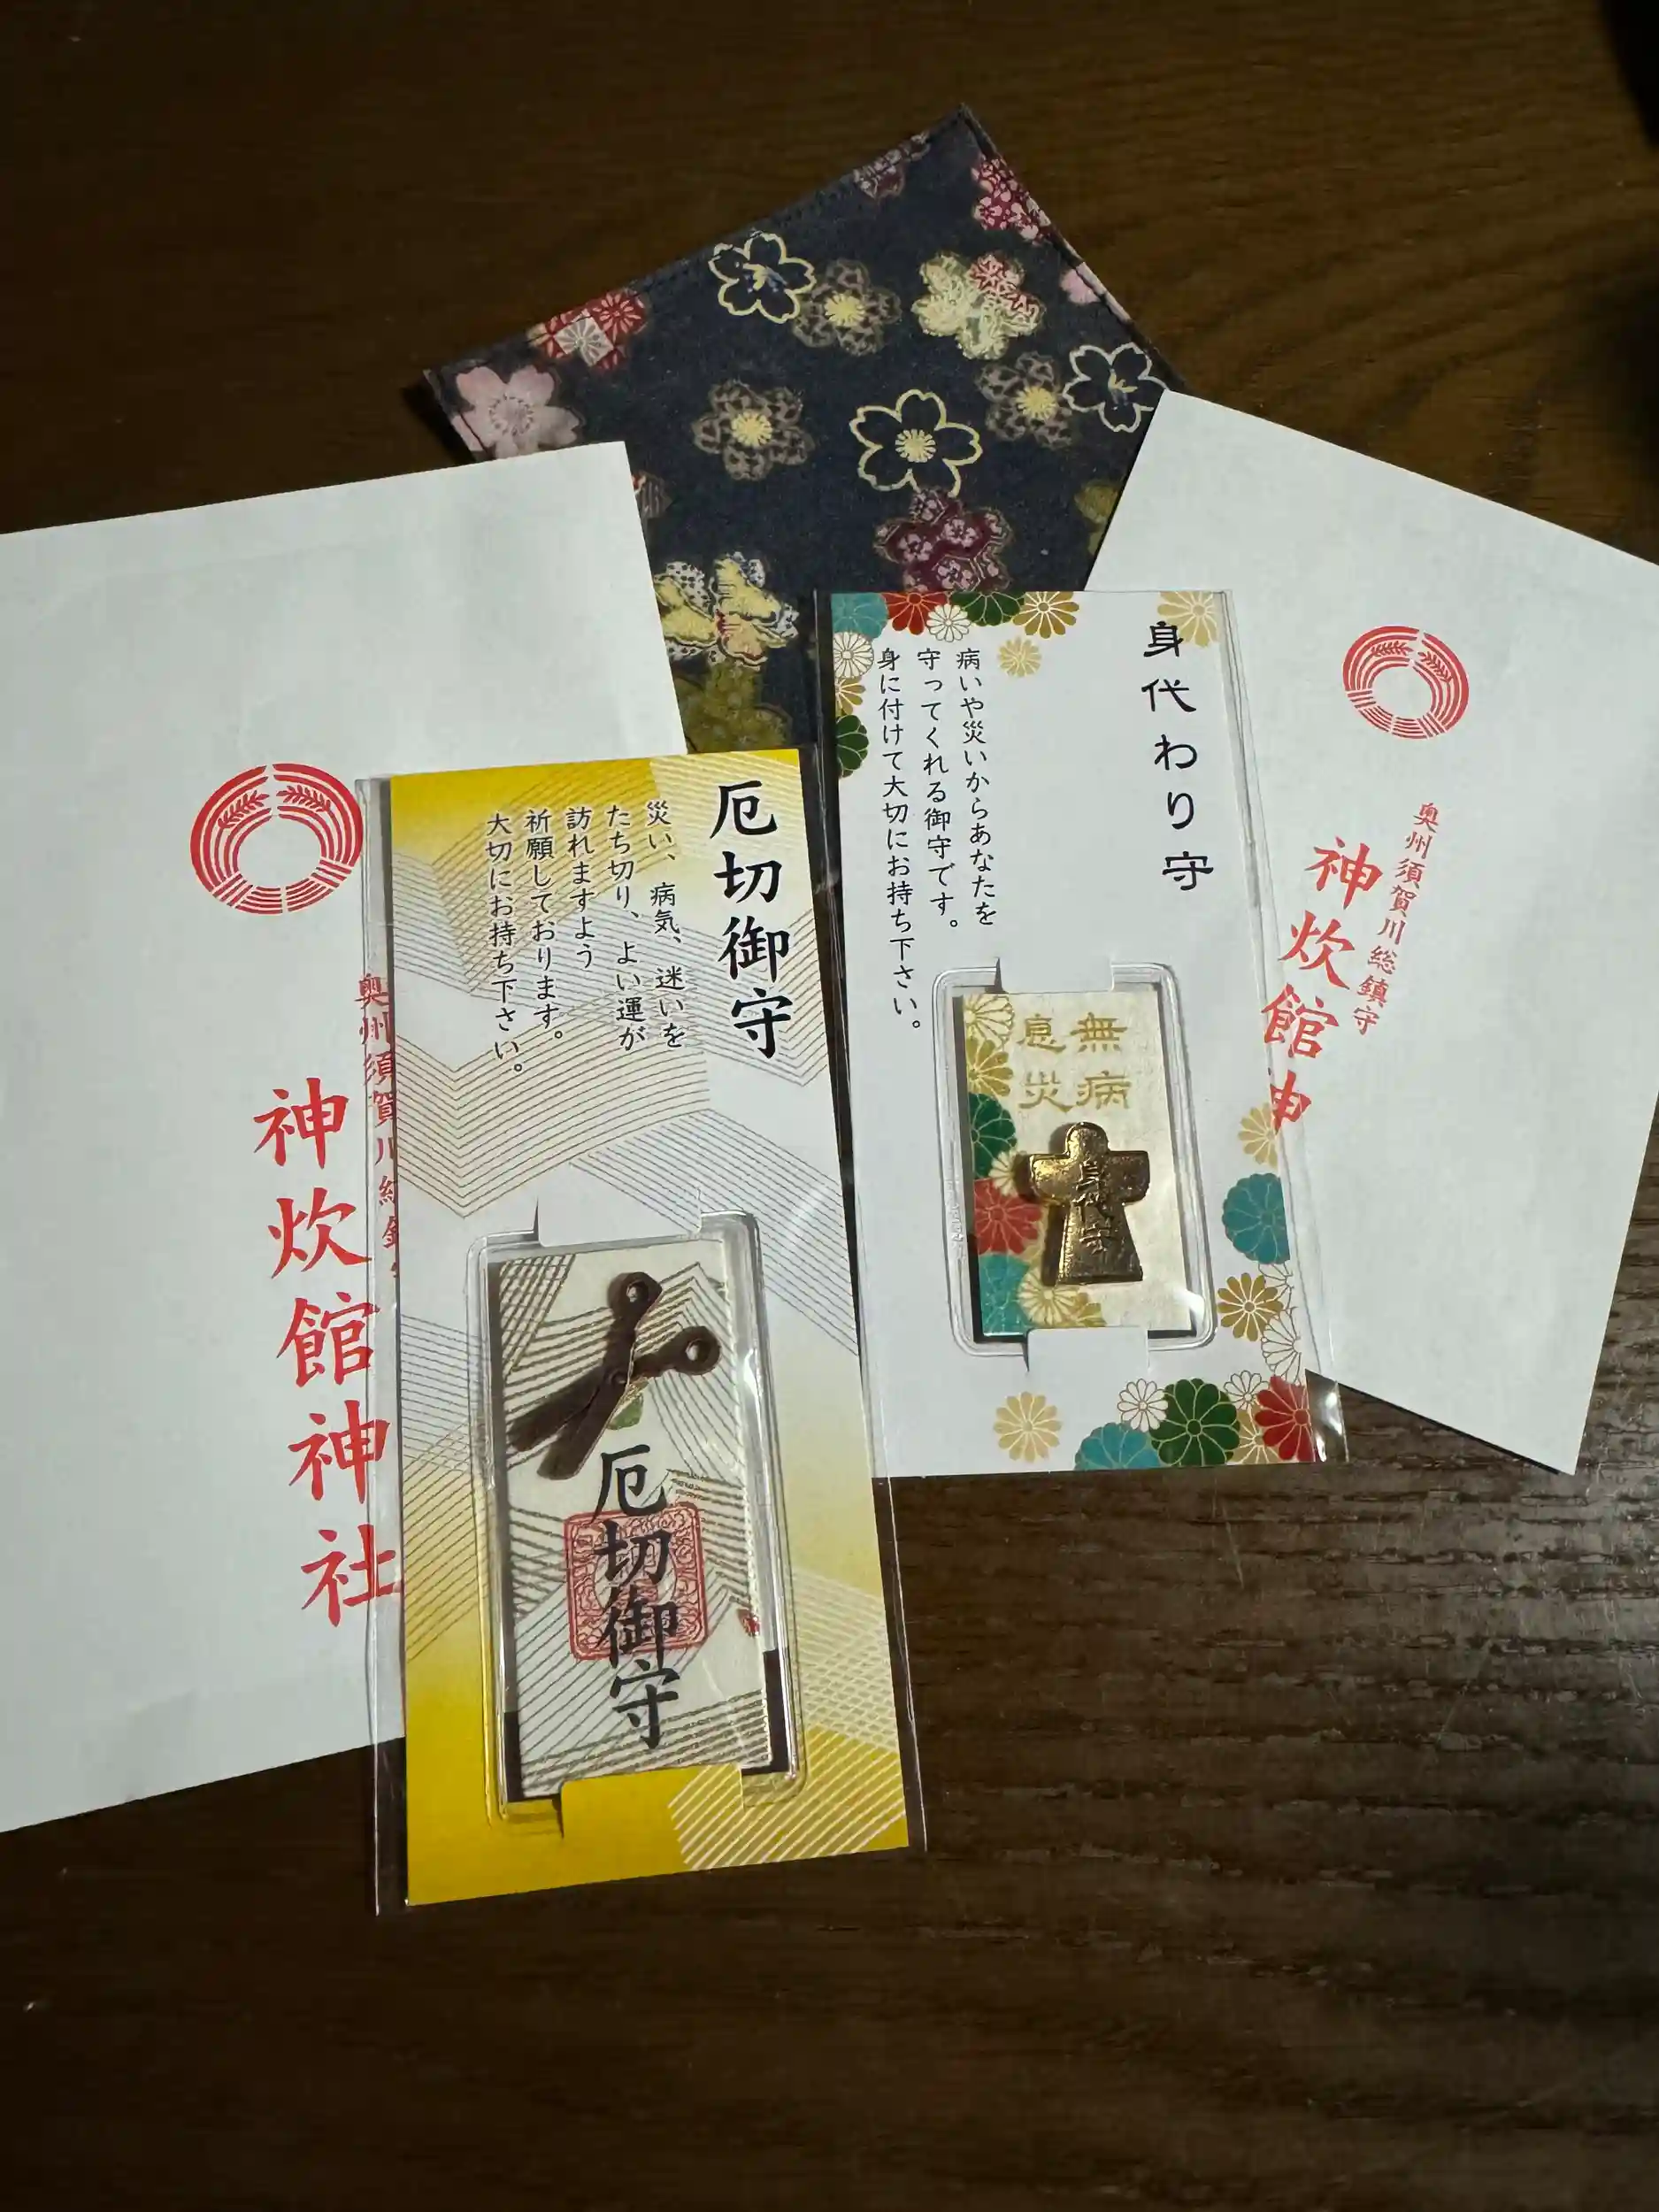 奥州須賀川総鎮守
神炊館神社
厄切御守
災い、病気、迷いを
たち切り、よい運が
訪れますよう
祈願しております。
大切にお持ち下さい。
厄切御守
身代わり守
病いや災いからあなたを
守ってくれる御守です。
身に付けて大切にお持ち下さい。
無病
息災
身代守
奥州須賀川総鎮守
神炊館神